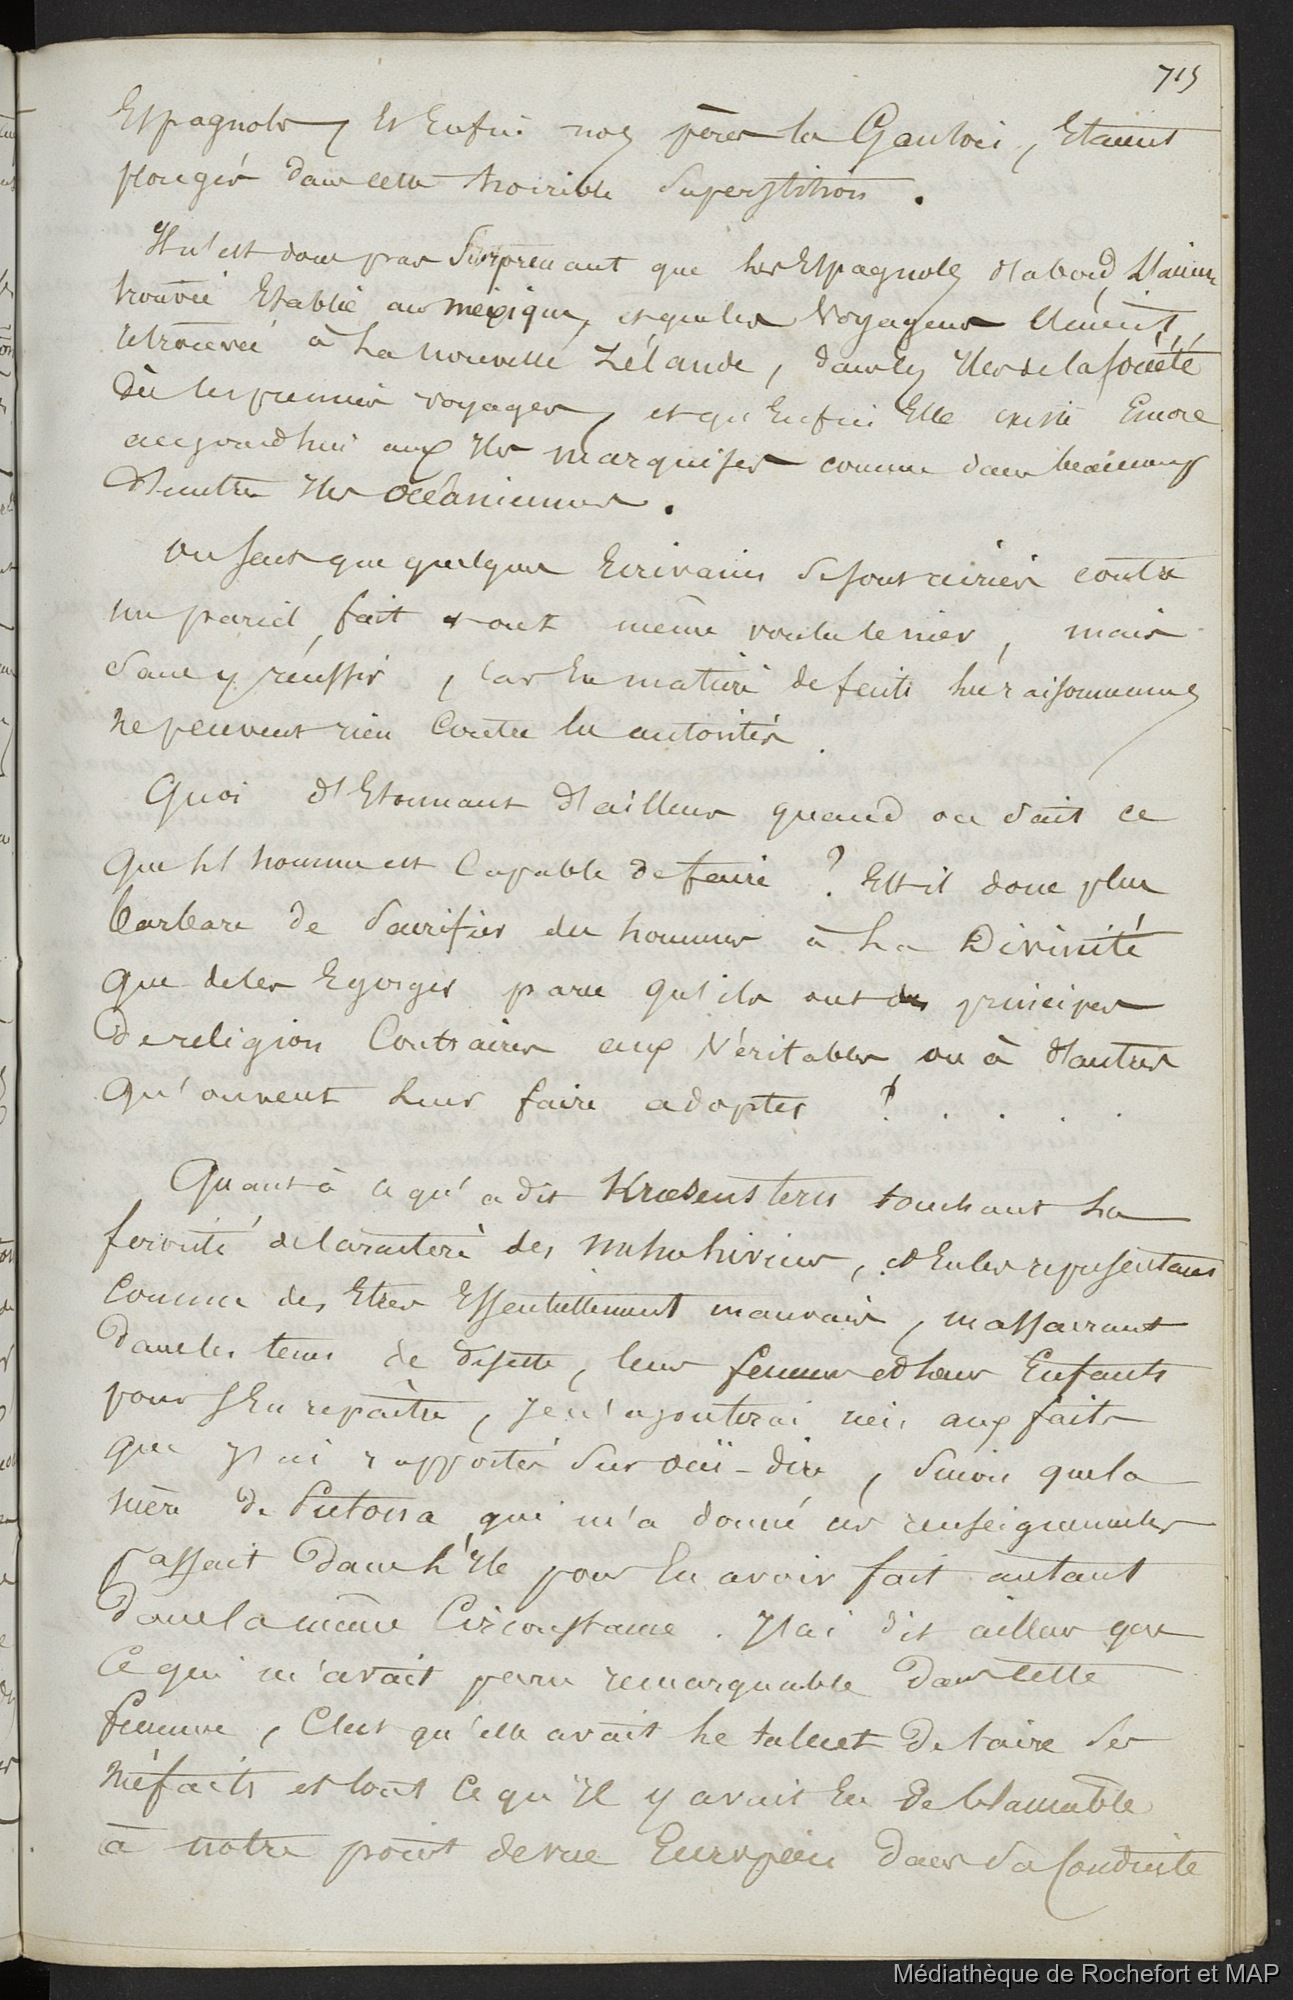 715
Espagnols, et Enfin nos pères les Gaulois, Etaient
plongés dans cette horrible Superstition.
Il n'est donc pas Surprenant que les Espagnols d'abord, l'aient
trouvée Etablie au mexique, et que les Voyageurs l'aient
retrouvée à La nouvelle Zélande, dans les Iles de la société
Dès les premiers voyages, et qu'Enfin Elle existe Encore
aujourdhui aux Iles marquises comme dans beaucoup
d'autres Iles océaniennes.
on sait que quelques Ecrivains se sont récriés contre
un pareil fait & ont même voulu le nier, mais
Sans y réussir, car En matière de faits les raisonnemens
ne peuvent rien Contre les autorités.
Quoi d'Etonnant d'ailleurs quand on sait ce
que l'homme est Capable de faire ? Est-il donc plus
barbare de Sacrifier des hommes à La Divinité
que de les Egorger parce qu'ils ont des principes
De religion Contraires aux Véritables, ou à d'autres
qu'on veut leur faire adopter ! . . . .
Quant à ce qu'a dit Krusenstern touchant La
férocité de caractère des nukuhiviens, et En les représentans
Comme des Etres Essentiellement mauvais, massacrant
Dans les tems de disette, leurs femmes et leurs Enfants
pour s'En repaître, je n'ajouterai rien aux faits
que j'ai rapportés Sur ouï-dire, Sinon que la
mère de Putona qui m'a donné ces renseignements
passait Dans l'Ile pour En avoir fait autant
Dans la même Circonstance. J'ai dit ailleurs que
Ce qui m'avait paru remarquable Dans Cette
femme, C'est qu'elle avait le talent De taire Ses
méfaits et tout Ce qu'Il y avait Eu De blamable
à notre point de vue Européen Dans Sa Conduite
Médiathèque de Rochefort et MAP